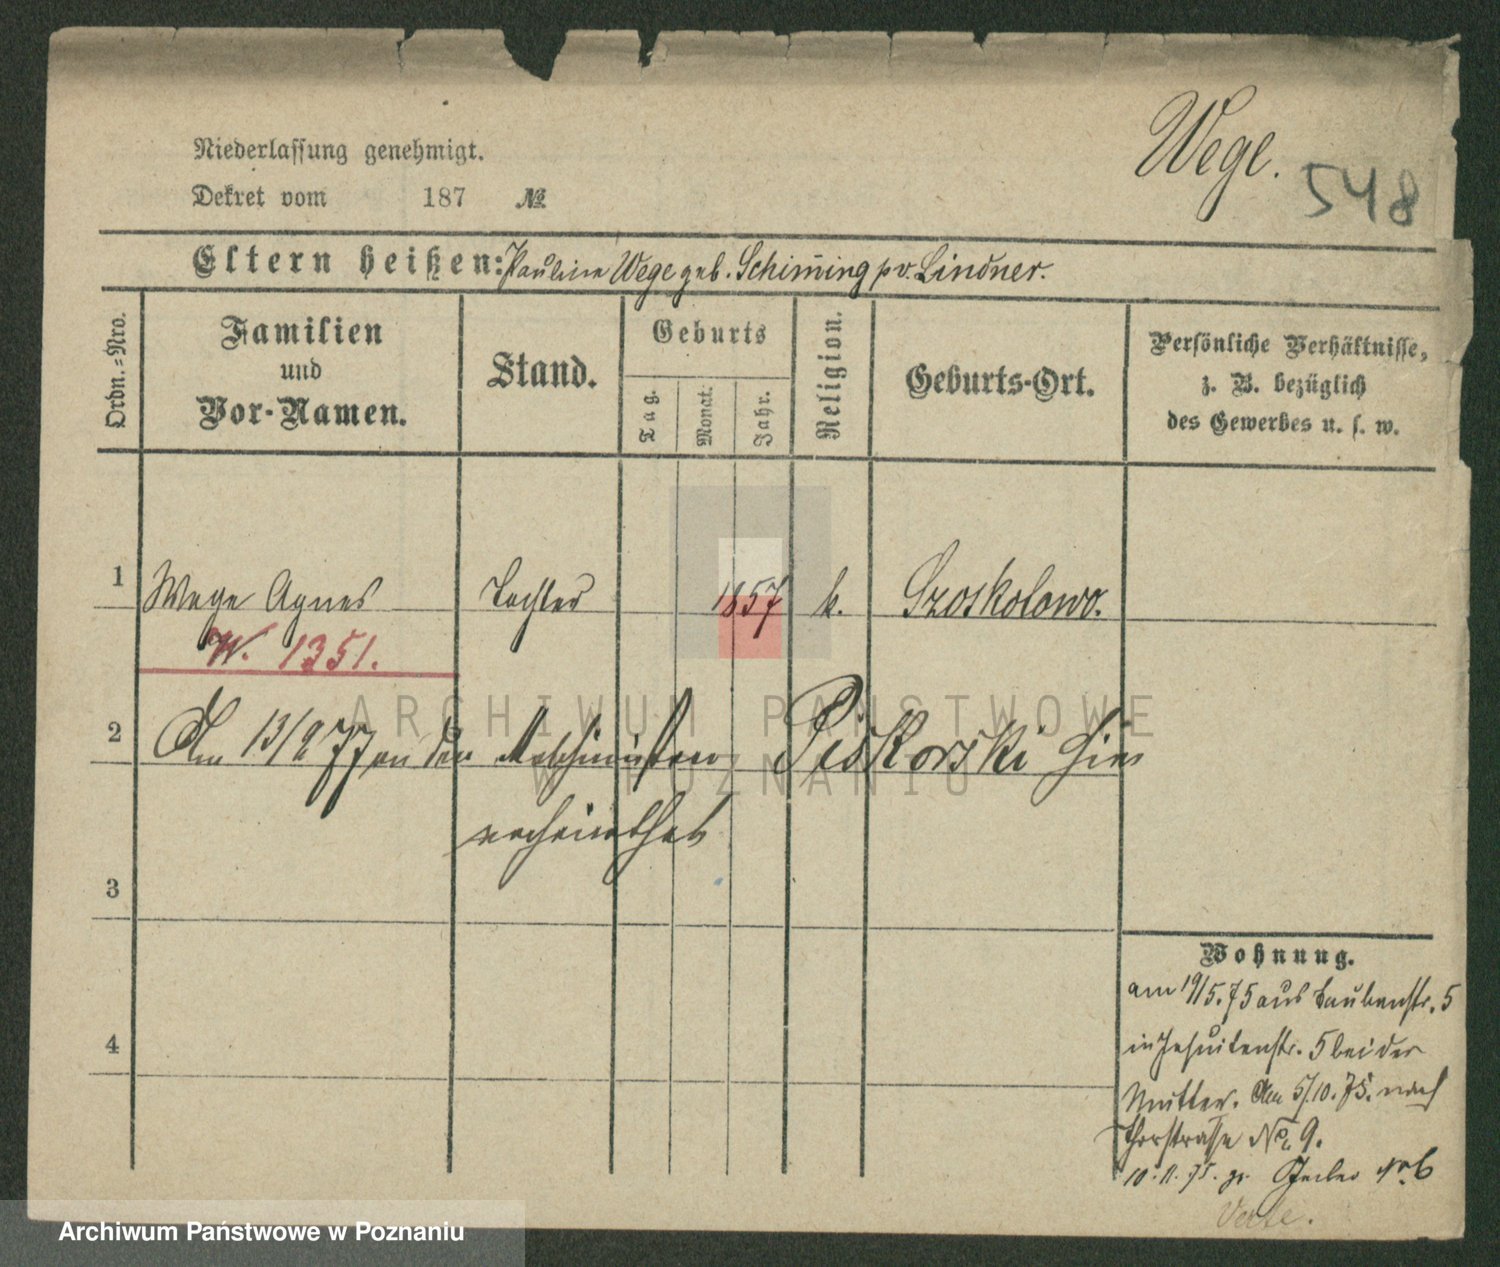 Wege.
548
Niederlassung genehmigt.
Dekret vom 187 №
Eltern heißen: Pauline Wege geb. Schiming pv. Lindner.
Ordn.-Nro.
Familien und Vor-Namen.
Stand.
Geburts
Tag.
Monat.
Jahr.
Religion.
Geburts-Ort.
Persönliche Verhältnisse,
z. B. bezüglich
des Gewerbes u. s. w.
1 Wege Agnes Tochter 1857 k. Szoskolowo.
W. 1351.
2 Am 13/2 77 an den Maschinisten Piskorski hier
verheirathet
3
4
Wohnung.
am 19/5.75 aus Taubenstr. 5
in Jesuitenstr. 5 bei der
Mutter. Am 5/10.75. nach
Thorstrasse No. 9.
10.11.75. gr. Gerber No 6
ARCHIWUM PAŃSTWOWE
W POZNANIU
Archiwum Państwowe w Poznaniu